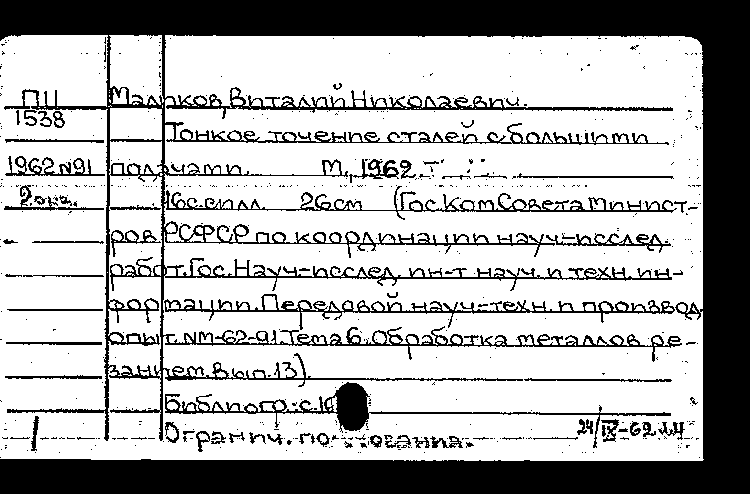 ПЦ Маликов, Виталий Николаевич.
1538
Тонкое точение сталей с большими
1962 N91 подачами. М., 1962
2 экз. 16с. с илл. 26см (Гос. Ком. Совета Минист-
ров РСФСР по координации науч-исслед.
работ. Гос. Науч-исслед. ин-т науч. и техн. ин-
формации. Передовой науч-техн. и производ.
опыт. №М-62-91. Тема 6. Обработка металлов ре-
занием. Вып. 13)
Библиогр.: с.
Огранич.
24/IX-62